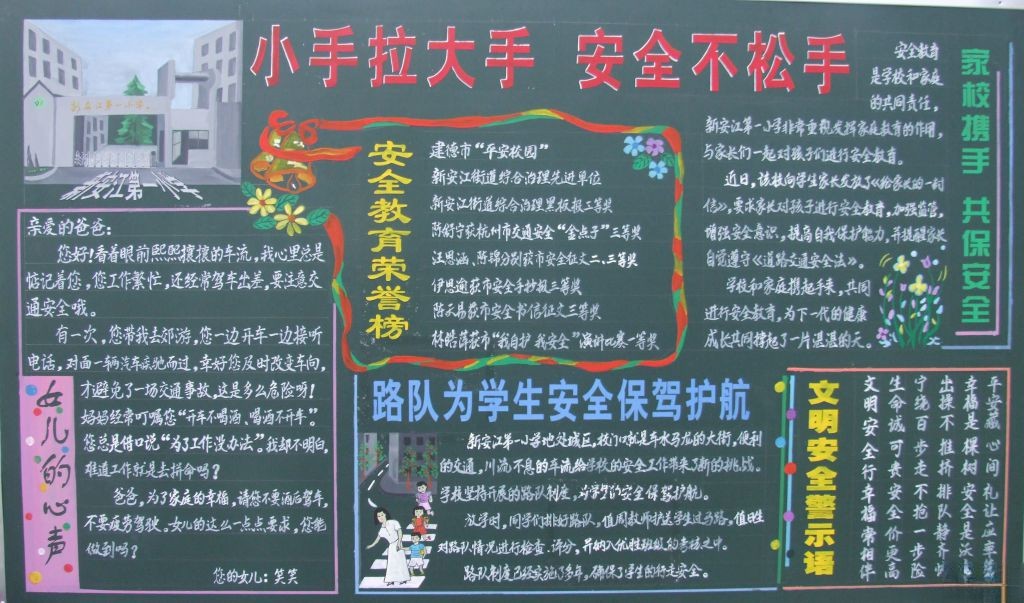 小手拉大手 安全不松手
新安江第一小学
新安江第一小学
亲爱的爸爸:
您好!看着眼前熙熙攘攘的车流,我心里总是
惦记着您,您工作繁忙,还经常驾车出差,要注意交
通安全哦。
有一次,您带我去郊游,您一边开车一边接听
电话,对面一辆汽车疾驰而过,幸好您及时改变车向,
才避免了一场交通事故,这是多么危险呀!
妈妈经常叮嘱您“开车不喝酒、喝酒不开车”。
您总是借口说“为了工作没办法”。我却不明白,
难道工作就是去拼命吗?
爸爸,为了家庭的幸福,请您不要酒后驾车,
不要疲劳驾驶。女儿的这么一点点要求,您能
做到吗?
您的女儿:笑笑
女儿的心声
安全教育荣誉榜
建德市“平安校园”
新安江街道综合治理先进单位
新安江街道综合治理黑板报二等奖
陈舒宁获杭州市交通安全“金点子”三等奖
汪恩涵、陈锦分别获市安全征文二、三等奖
伊恩逾获市安全手抄报三等奖
陈云易获市安全书信征文三等奖
林皓萍获市“我自护 我安全”演讲比赛一等奖
家校携手 共保安全
安全教育
是学校和家庭
的共同责任,
新安江第一小学非常重视发挥家庭教育的作用,
与家长们一起对孩子们进行安全教育。
近日,该校向学生家长发放了《给家长的一封
信》,要求家长对孩子进行安全教育,加强监管,
增强安全意识,提高自我保护能力,并提醒家长
自觉遵守《道路交通安全法》。
学校和家庭携起手来,共同
进行安全教育,为下一代的健康
成长共同撑起了一片湛湛的天。
路队为学生安全保驾护航
新安江第一小学地处城区,校门口就是车水马龙的大街,便利
的交通,川流不息的车流给学校的安全工作带来了新的挑战。
学校坚持开展的路队制度,为学生的安全保驾护航。
放学时,同学们排好路队,值周教师护送学生过马路,值日生
对路队情况进行检查、评分,并纳入优胜班级的考核之中。
路队制度已经实施了多年,确保了学生的行走安全。
文明安全警示语
平安藏心间 礼让应率
幸福是棵树 安全是沃
出操不推挤 排队静齐
宁绕百步走 不抢一步险
生命诚可贵 安全价更高
文明安全行 幸福常相伴